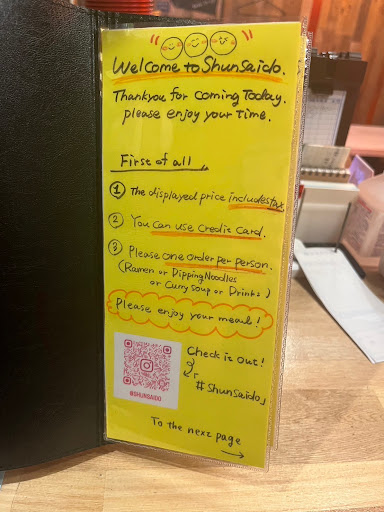 Welcome to ShunSaido.
Thankyou for coming Today.
please enjoy your time.
First of all
① The displayed price includes tax.
② You can use Credit Card.
③ Please one order per person.
(Ramen or Dipping Noodles
or Curry Soup or Drinks)
Please enjoy your meal!
Check it Out!
#ShunSaido」
@SHUNSAIDO
To the next page
→